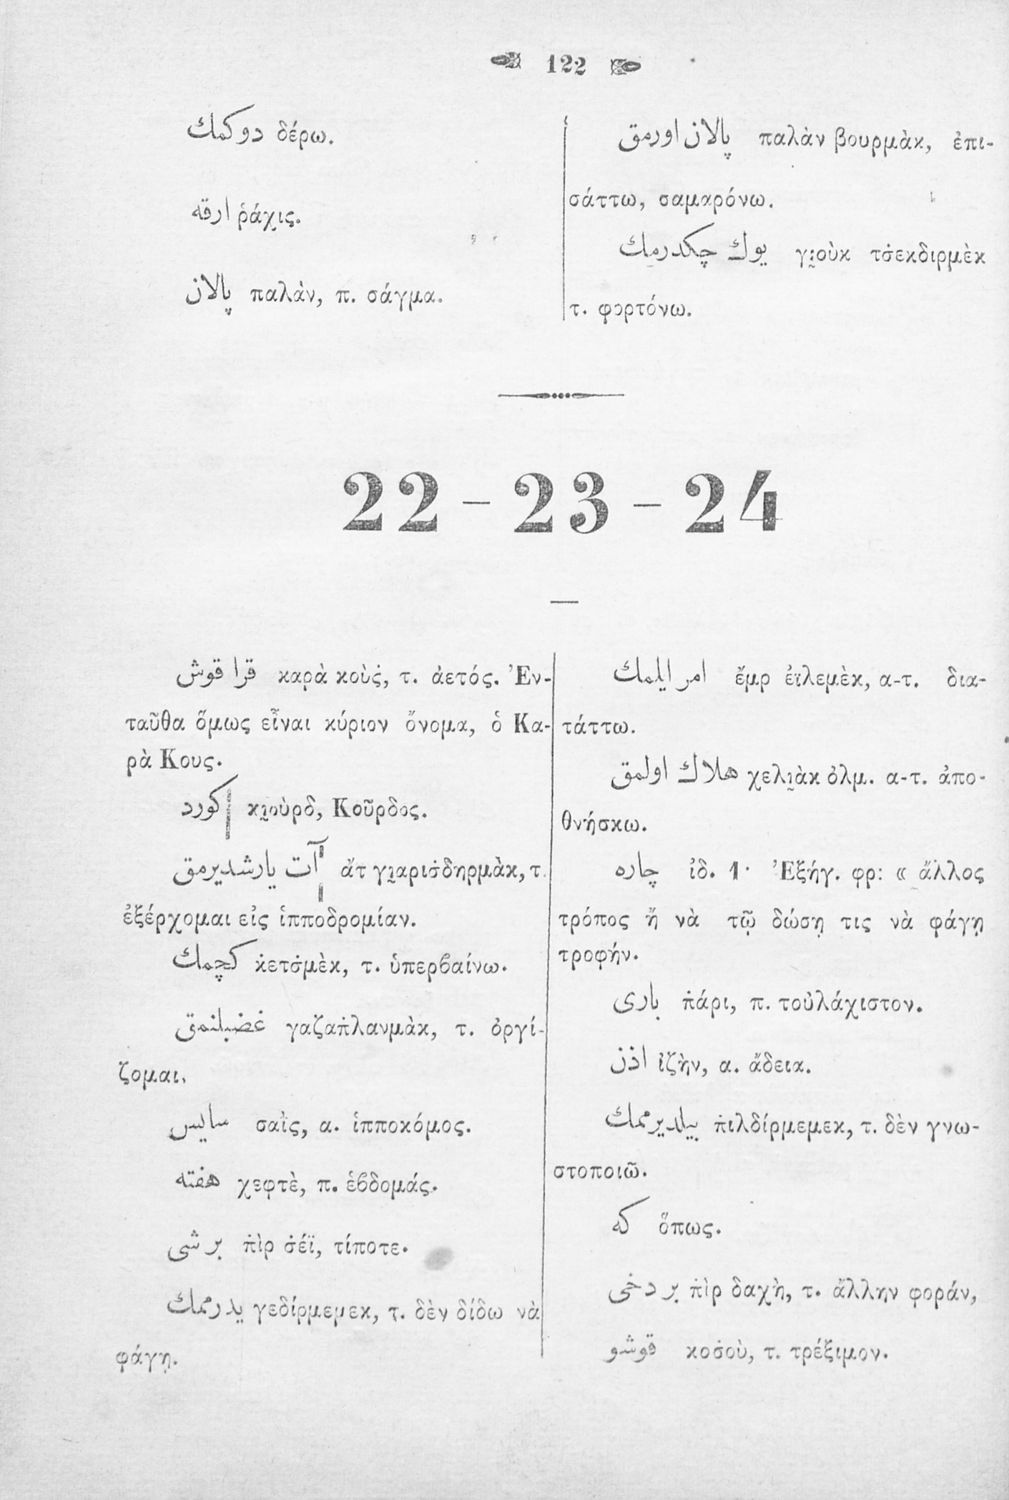 122
دوكمك δέρω.
ارقه ῥάχις.
پالان παλὰν, π. σάγμα.
پالان اورمق παλὰν βουρμὰκ, ἐπι-
σάττω, σαμαρόνω.
يوك چكدرمك γι̮οὺκ τσ̇εκδιρμὲκ
τ. φορτόνω.
22 - 23 - 24
قرا قوش καρὰ κοὺς̇, τ. ἀετός. Ἐν-
ταῦθα ὅμως εἶναι κύριον ὄνομα, ὁ Κα-
ρὰ Κους.
كورد κι̮οὺρδ, Κοῦρδος.
آت يارشديرمق ἄτ γι̮αρισ̇δηρμὰκ, τ.
ἐξέρχομαι εἰς ἱπποδρομίαν.
كچمك κ̇ετσ̇μὲκ, τ. ὑπερβαίνω.
غضبلنمق γαζαπ̇λανμὰκ, τ. ὀργί-
ζομαι.
سايس σαῒς, α. ἱπποκόμος.
هفته χεφτὲ, π. ἑβδομάς.
بر شى π̇ὶρ σ̇έϊ, τίποτε.
يدرممك γεδίρμεμεκ, τ. δὲν δίδω νὰ
φάγῃ.
امر ايلمك ἔμρ ἐϊλεμὲκ, α-τ. δια-
τάττω.
هلاك اولمق χελι̮ὰκ ὀλμ. α-τ. ἀπο-
θνήσκω.
چاره ἰδ. 1· Ἐξήγ. φρ: « ἄλλος
τρόπος ἢ νὰ τῷ δώσῃ τις νὰ φάγῃ
τροφήν.
بارى π̇άρι, π. τοὐλάχιστον.
اذن ἰζὴν, α. ἄδεια.
بيلديرممك π̇ιλδίρμεμεκ, τ. δὲν γνω-
στοποιῶ.
كه ὅπως.
بر دخى π̇ὶρ δαχὴ, τ. ἄλλην φοράν,
قوشو κοσ̇οὺ, τ. τρέξιμον.